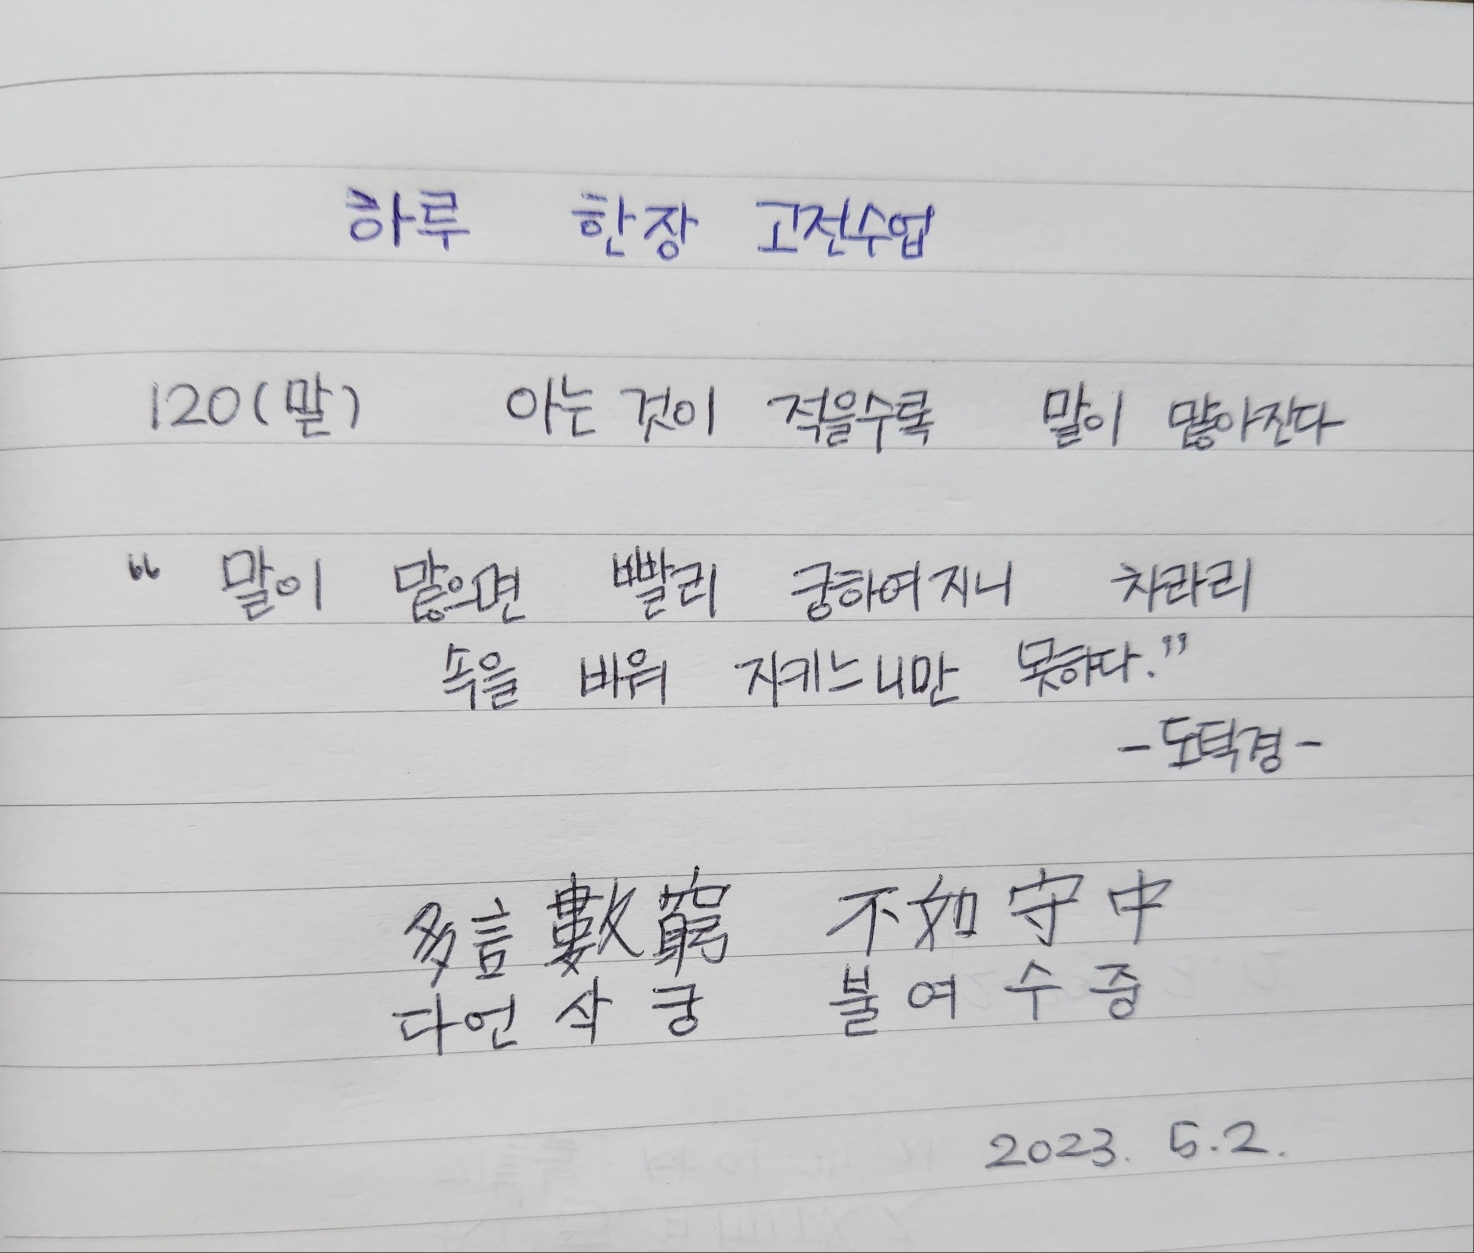 하루 한장 고전수업
120(말) 아는 것이 적을수록 말이 많아진다
“ 말이 많으면 빨리 궁하여지니 차라리
속을 비워 지키느니만 못하다.”
- 도덕경 -
多言數窮 不如守中
다언삭궁 불여수중
2023. 5.2.